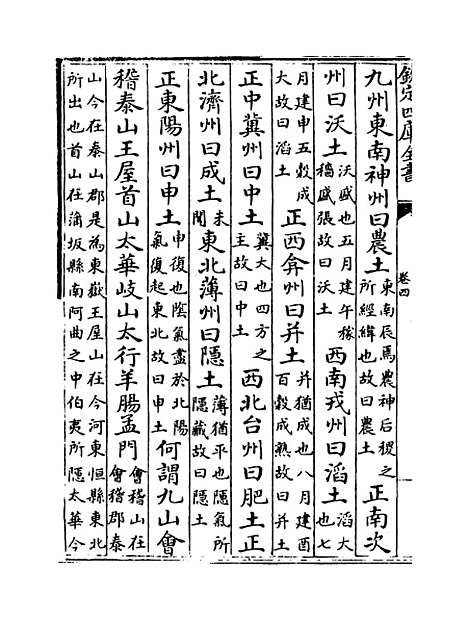 欽定四庫全書
卷四
九州東南神州曰農土東南辰為農神后稷之所經緯也故曰農土正南次
州曰沃土沃盛也五月建午稼穡盛張故曰沃土西南戎州曰滔土滔大也七
月建申五穀成大故曰滔土正西弇州曰并土并猶成也八月建酉百穀成熟故曰并土
正中冀州曰中土冀大也四方之主故曰中土西北台州曰肥土正
北濟州曰成土未聞東北薄州曰隱土薄猶平也隱氣所隱藏故曰隱土
正東陽州曰申土申復也陰氣盡於北陽氣復起東北故曰申土何謂九山會
稽泰山王屋首山太華岐山太行羊腸孟門會稽山在會稽郡泰
山今在泰山郡是為東嶽王屋山在今河東垣縣東北
所出也首山在蒲坂縣南阿曲之中伯夷所隱太華今